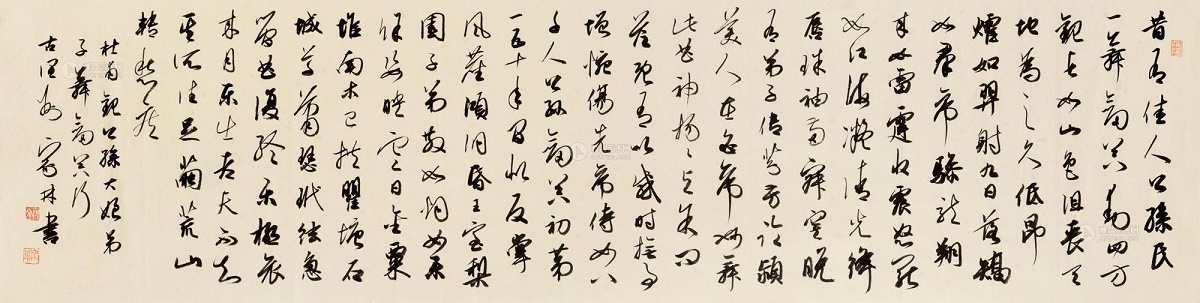 昔有佳人公孫氏
一舞劍器動四方
觀者如山色沮喪天
地為之久低昂
㸌如羿射九日落矯
如群帝驂龍翔
來如雷霆收震怒罷
如江海凝清光絳
唇珠袖兩寂寞晚
有弟子傳芬芳臨潁
美人在白帝妙舞
此曲神揚揚與余問
答既有以感時撫事
增惋傷先帝侍女八
千人公孫劍器初第
一五十年間似反掌
風塵澒洞昏王室梨
園子弟散如煙女樂
餘姿映寒日金粟
堆南木已拱瞿塘石
城草蕭瑟玳絃急
管曲復終樂極哀
來月東出老夫不知
其所往足繭荒山
轉愁疾
杜甫觀公孫大娘弟
子舞劍器行
古 林書